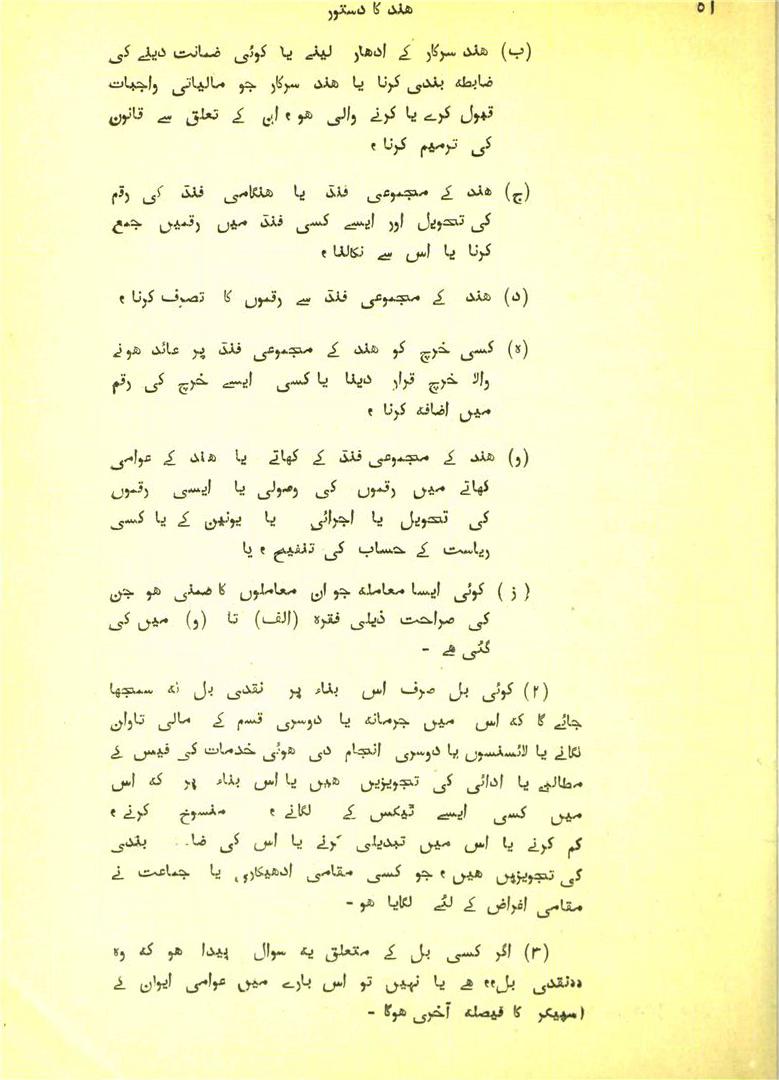 ۵۱
هند کا دستور
(ب) هند سرکار کے ادهار لینے یا کوئی ضمانت دینے کی
ضابطه بندی کرنا یا هند سرکار جو مالیاتی واجبات
قبول کرے یا کرنے والی هو ، ان کے تعلق سے قانون
کی ترمیم کرنا ،
(ج) هند کے مجموعی فنڈ یا هنگامی فنڈ کی رقم
کی تحویل اور ایسے کسی فنڈ میں رقمیں جمع
کرنا یا اس سے نکالنا ،
(د) هند کے مجموعی فنڈ سے رقموں کا تصرف کرنا ،
(ه) کسی خرچ کو هند کے مجموعی فنڈ پر عائد هونے
والا خرچ قرار دینا یا کسی ایسے خرچ کی رقم
میں اضافه کرنا ،
(و) هند کے مجموعی فنڈ کے کهاتے یا هند کے عوامی
کهاتے میں رقموں کی وصولی یا ایسی رقموں
کی تحویل یا اجرائی یا یونین کے یا کسی
ریاست کے حساب کی تنقیح ، یا
(ز) کوئی ایسا معامله جو ان معاملوں کا ضمنی هو جن
کی صراحت ذیلی فقره (الف) تا (و) میں کی
گئی هے -
(۲) کوئی بل صرف اس بناء پر نقدی بل نه سمجها
جائے گا که اس میں جرمانه یا دوسری قسم کے مالی تاوان
لگانے یا لائسنسوں یا دوسری انجام دی هوئی خدمات کی فیس کے
مطالبے یا ادائی کی تجویزیں هیں یا اس بناء پر که اس
میں کسی ایسے ٹیکس کے لگانے ، منسوخ کرنے ،
کم کرنے یا اس میں تبدیلی کرنے یا اس کی بندی
کی تجویزیں هیں ، جو کسی مقامی ادهیکاری یا جماعت نے
مقامی اغراض کے لئے لگایا هو -
(۳) اگر کسی بل کے متعلق یه سوال پیدا هو که وه
،،نقدی بل،، هے یا نهیں تو اس بارے میں عوامی ایوان کے
اسپیکر کا فیصله آخری هوگا -